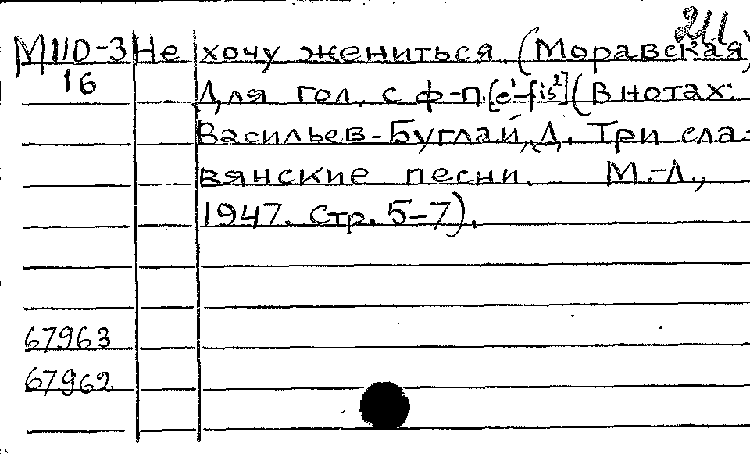 211
М110-3 Не хочу жениться. (Моравская)
16 Для гол. с ф-п. [e¹-fis²] (В нотах:
Васильев-Буглай, Д. Три сла-
вянские песни. М.-Л.,
1947. Стр. 5-7).
67963
67962